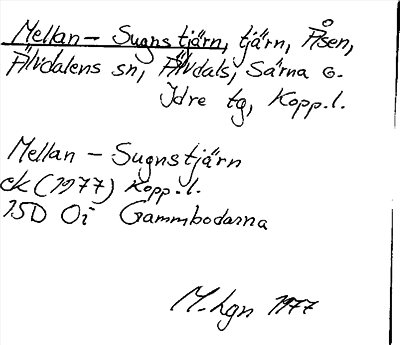 Mellan-Sugnstjärn, tjärn, Åsen,
Älvdalens sn, Älvdals, Särna o.
Idre tg, Kopp.l.
Mellan-Sugnstjärn
ek (1977) Kopp.l.
15D Oi Gammbodarna
M.Lgn 1977